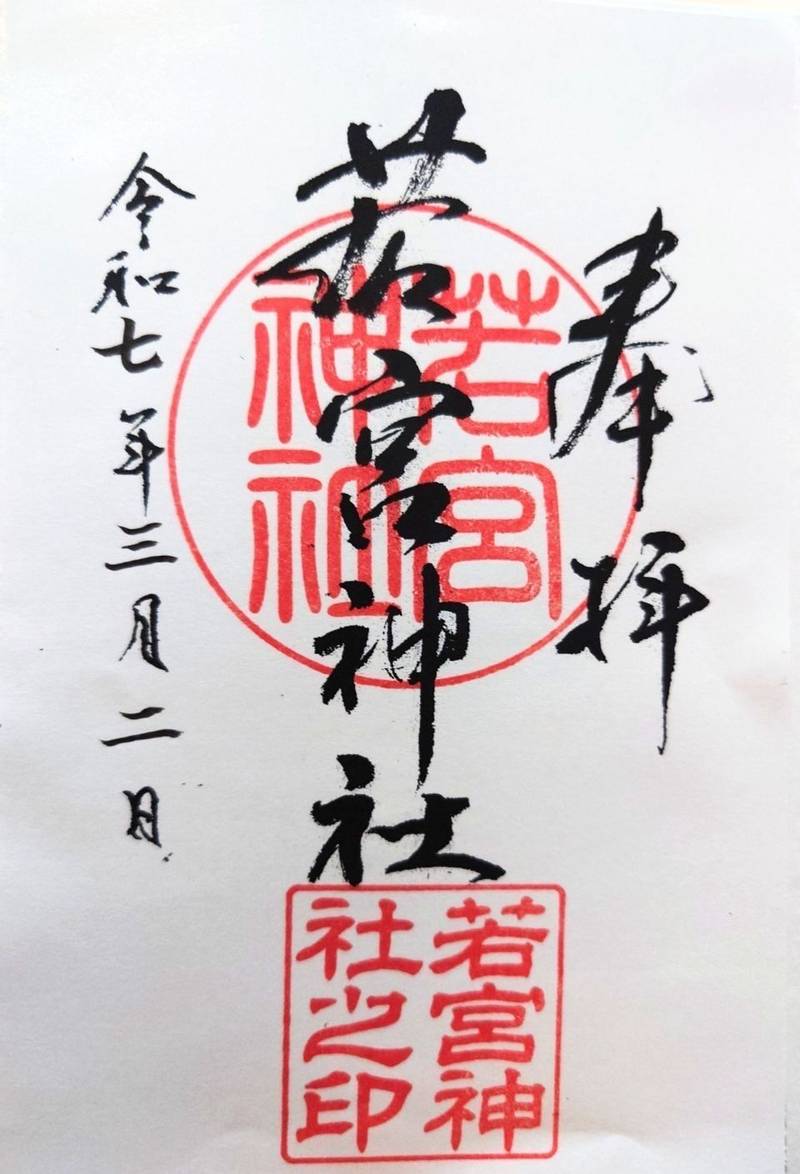 奉拝
若宮神社
若宮
神社
若宮神
社之印
令和七年三月二日